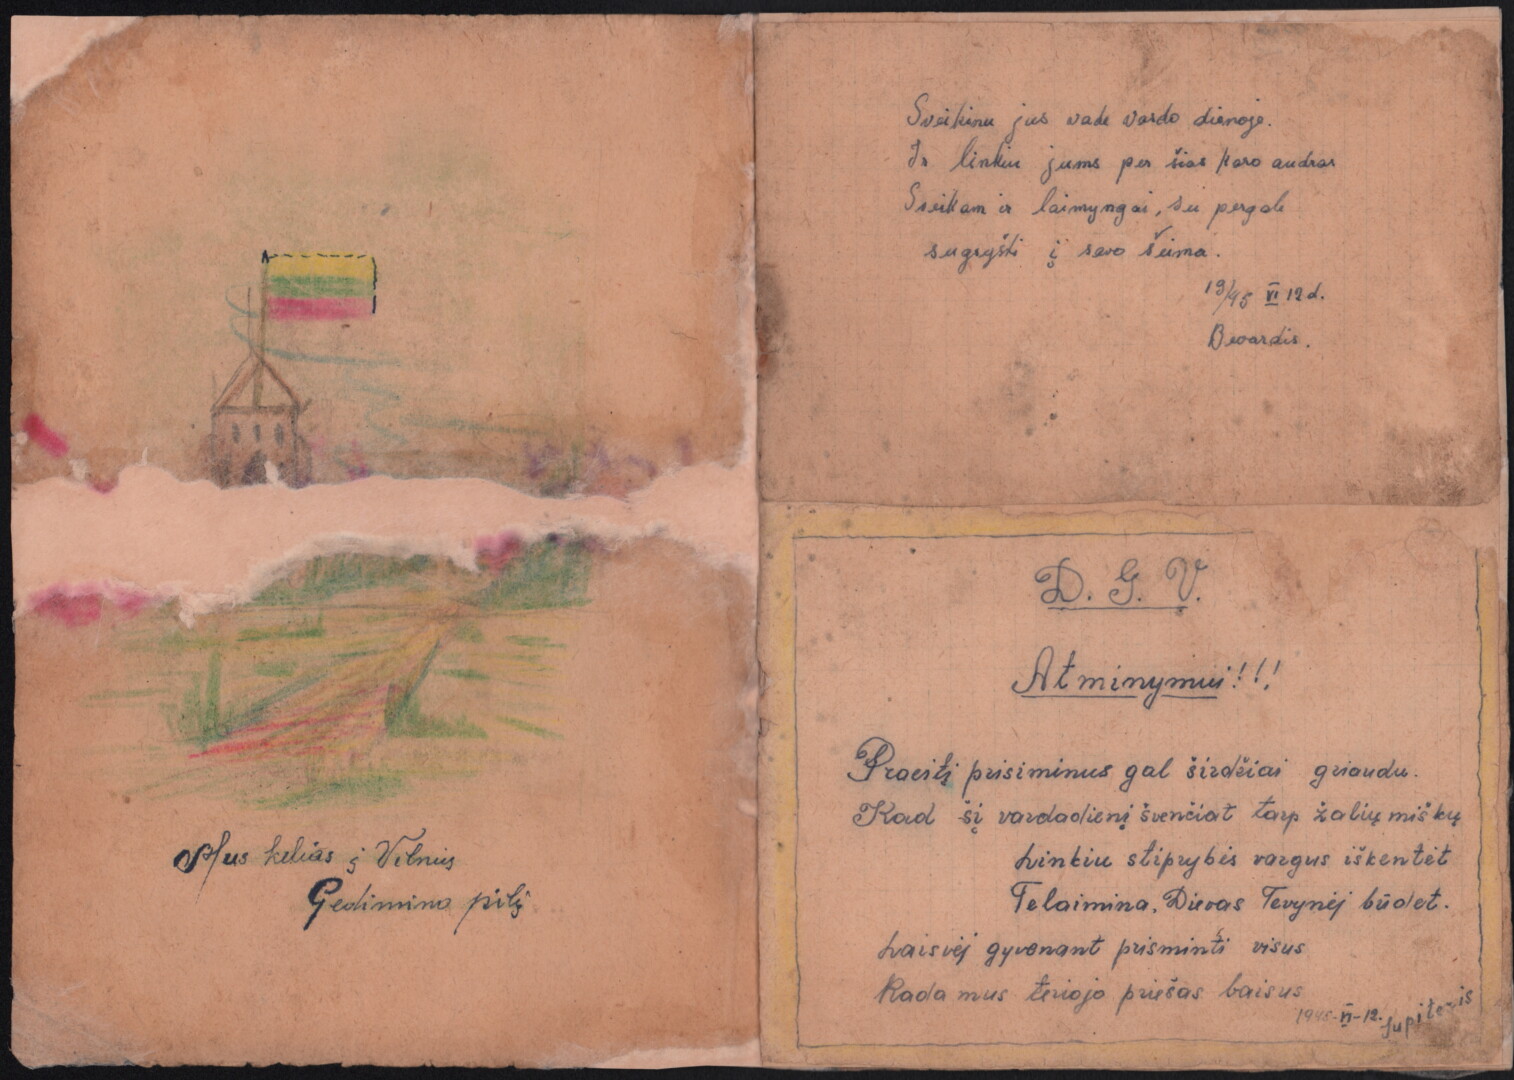 Mus kelias į Vilnių
Gedimino pilį
Sveikinu jus vade vardo dienoje.
Ir linkiu jums per šias karo audras
Sveikam ir laimyngai, su pergale
sugryšti į savo šeima.
19/45 VI 12 d.
D. G. V.
Atminymui!!!
Praeitį prisiminus gal širdžiai griaudu.
Kad šį vardadienį švenčiat tarp žalių miškų
Linkiu stiprybės vargus iškentėt
Telaimina, Dievas Tevynėj būdet.
Laisvėj gyvenant prisminti visus
Kada mus teriojo priešas baisus
1945-VI-12. Jupiteris